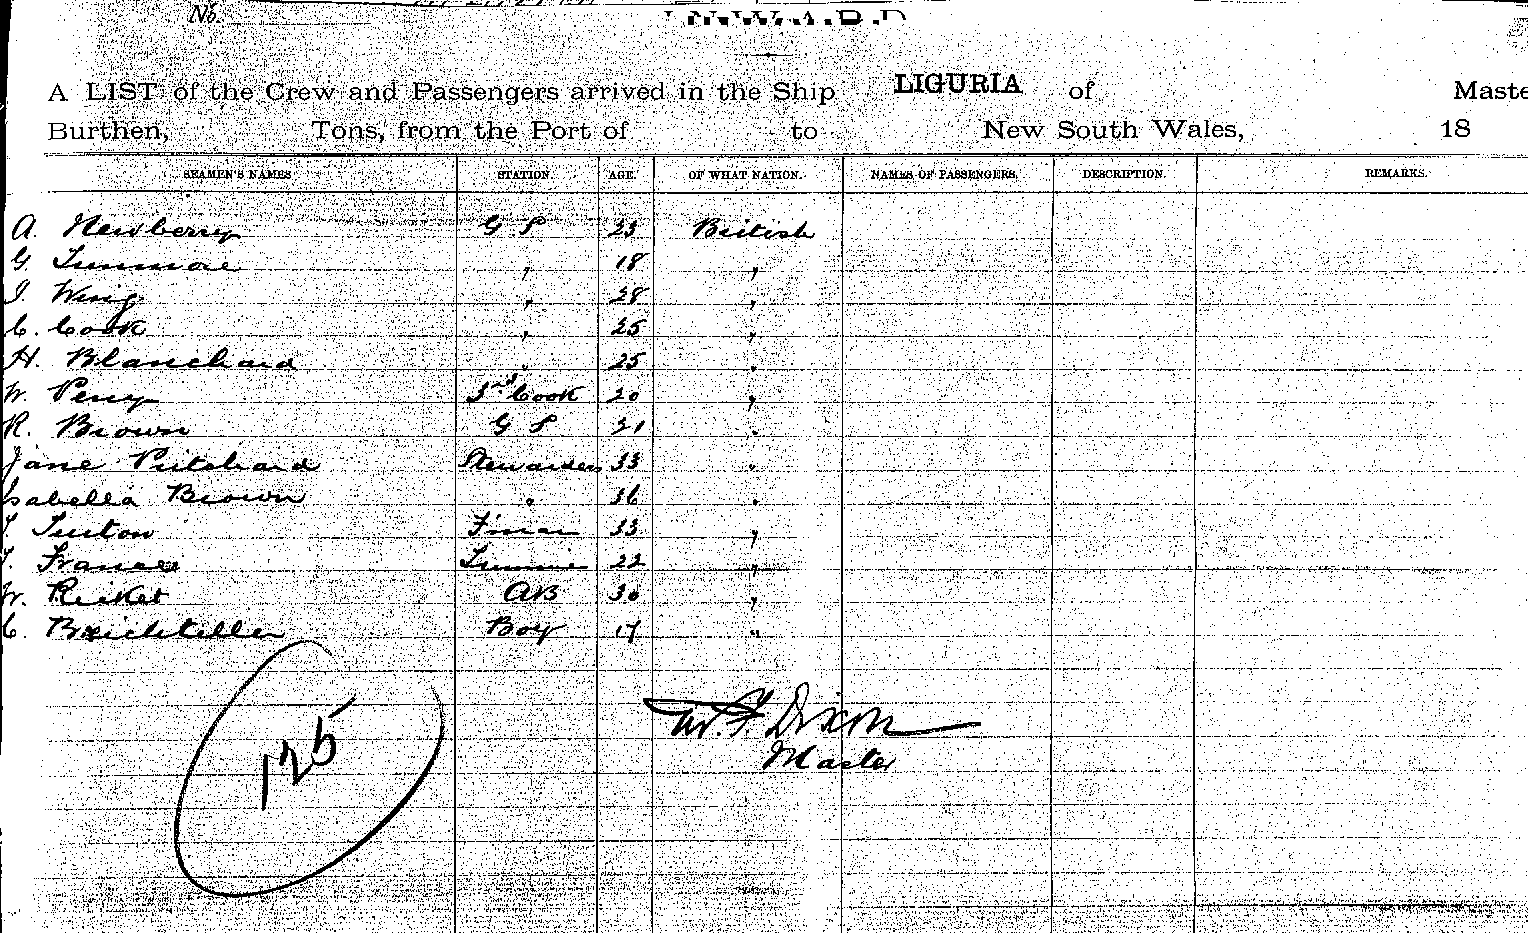 No.
INWARD
A LIST of the Crew and Passengers arrived in the Ship LIGURIA of Maste
Burthen, Tons, from the Port of to New South Wales, 18
SEAMEN'S NAMES STATION. AGE. OF WHAT NATION. NAMES OF PASSENGERS. DESCRIPTION. REMARKS.
A. Newberry G S 23 British
G. 18 "
J. Wing " 28 "
C. Cook " 25 "
H. Blanchard " 25 "
W. Perry 3rd Cook 20 "
R. Brown G S 21 "
Jane Pritchard Stewardess 33 "
Isabella Brown " 36 "
Fireman 33 "
F. France Trimmer 22 "
W. Ricket AB 30 "
C. Boy 17 "
W. F. Dixon
Master
125